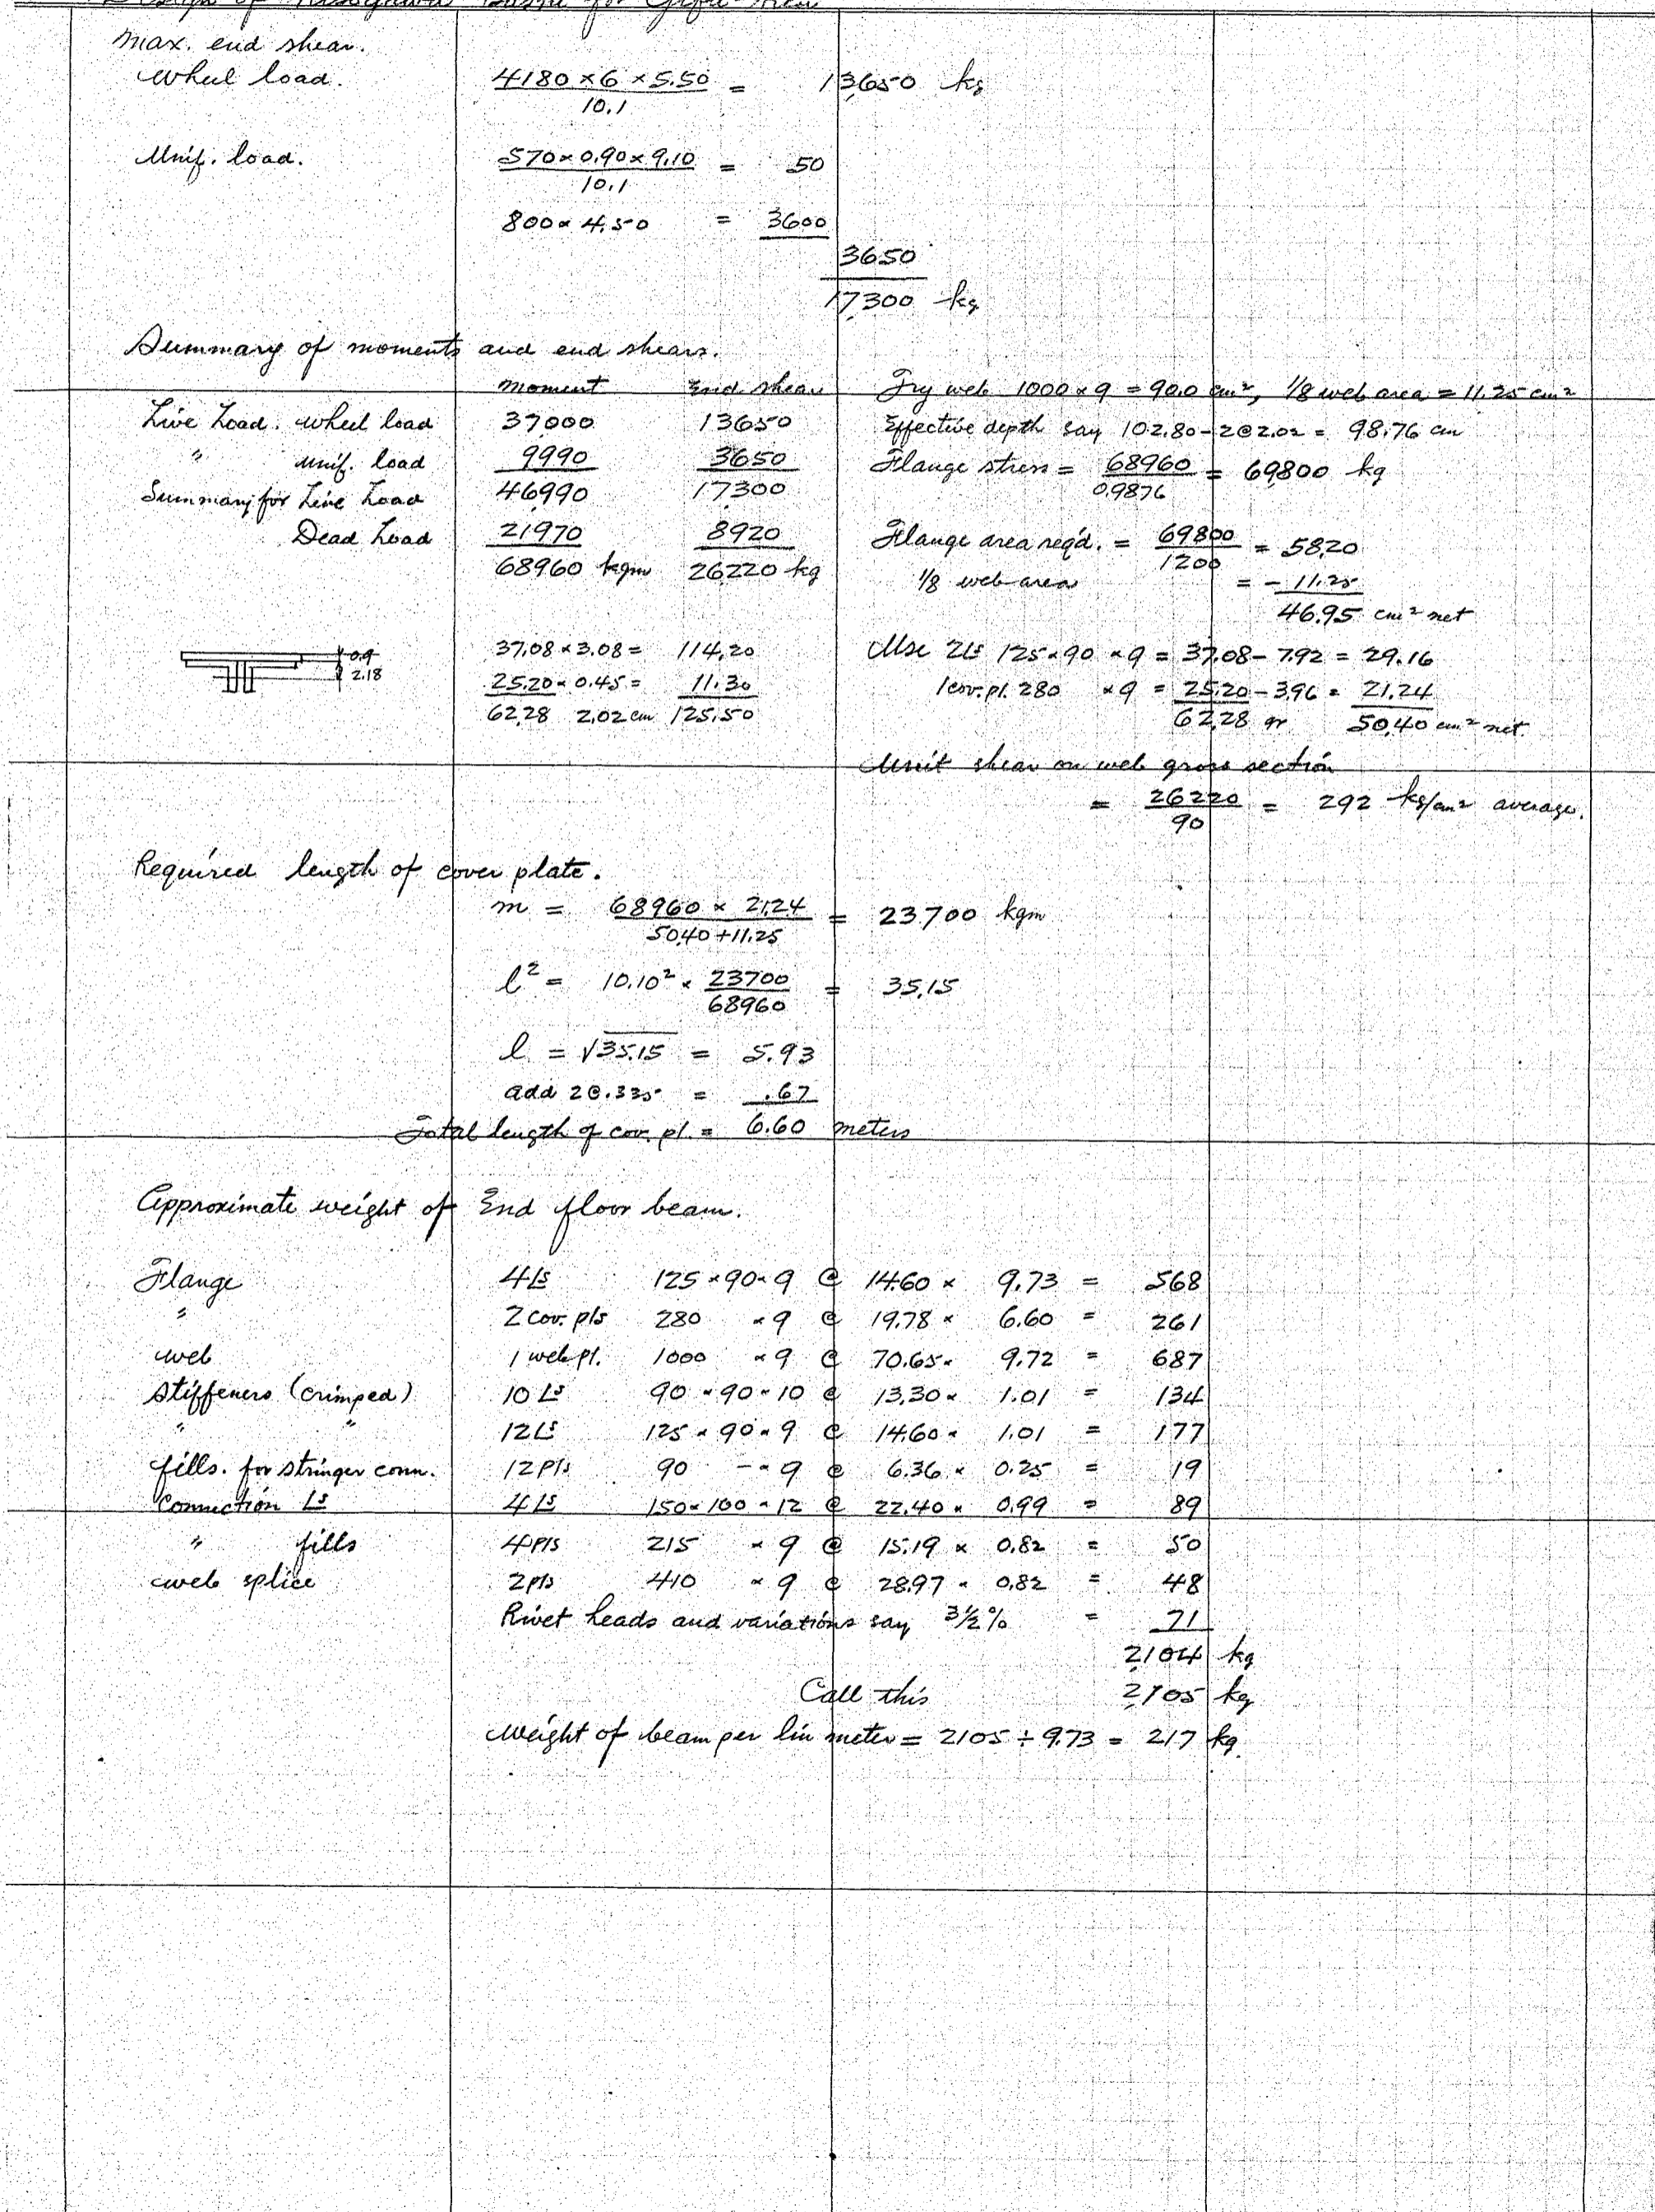 Design of Kisogawa Bashi for Gifu-Ken
Max. end shear.
Wheel load. 4180 × 6 × 5.50 / 10.1 = 13,650 kg
Unif. load. 570 × 0.90 × 9.10 / 10.1 = 50
800 × 4.50 = 3600
3650
17,300 kg
Summary of moments and end shears.
Moment End shear
Live Load. wheel load 37,000 13650
" unif. load 9990 3650
Summary for Live Load 46,990 17,300
Dead Load 21970 8920
68960 kgm 26,220 kg
Try web 1000 × 9 = 90.0 cm², 1/8 web area = 11.25 cm²
Effective depth say 102.80 - 2@2.02 = 98.76 cm
Flange stress = 68960 / 0.9876 = 69,800 kg
Flange area req'd. = 69800 / 1200 = 58.20
1/8 web area = - 11.25
46.95 cm² net
0.9
2.18
37.08 × 3.08 = 114.20
25.20 × 0.45 = 11.30
62.28 2.02 cm 125.50
Use 2Ls 125 × 90 × 9 = 37.08 - 7.92 = 29.16
1 cov. pl. 280 × 9 = 25.20 - 3.96 = 21.24
62.28 gr 50.40 cm² net.
Unit shear on web gross section
= 26220 / 90 = 292 kg/cm² average.
Required length of cover plate.
m = 68960 × 21.24 / 50.40 + 11.25 = 23,700 kgm
l² = 10.10² × 23700 / 68960 = 35.15
l = √35.15 = 5.93
add 2@.335 = .67
Total length of cov. pl. = 6.60 meters
Approximate weight of End floor beam.
Flange 4Ls 125 × 90 × 9 @ 14.60 × 9.73 = 568
" 2 cov. pls 280 × 9 @ 19.78 × 6.60 = 261
web 1 web pl. 1000 × 9 @ 70.65 × 9.72 = 687
Stiffeners (crimped) 10 Ls 90 × 90 × 10 @ 13.30 × 1.01 = 134
" " 12Ls 125 × 90 × 9 @ 14.60 × 1.01 = 177
fills. for stringer conn. 12 Pls 90 - × 9 @ 6.36 × 0.25 = 19
Connection Ls 4 Ls 150 × 100 × 12 @ 22.40 × 0.99 = 89
" fills 4 Pls 215 × 9 @ 15.19 × 0.82 = 50
web splice 2 pls 410 × 9 @ 28.97 × 0.82 = 48
Rivet heads and variations say 3½% = 71
2,104 kg
Call this 2,105 kg
Weight of beam per lin meter = 2105 ÷ 9.73 = 217 kg.